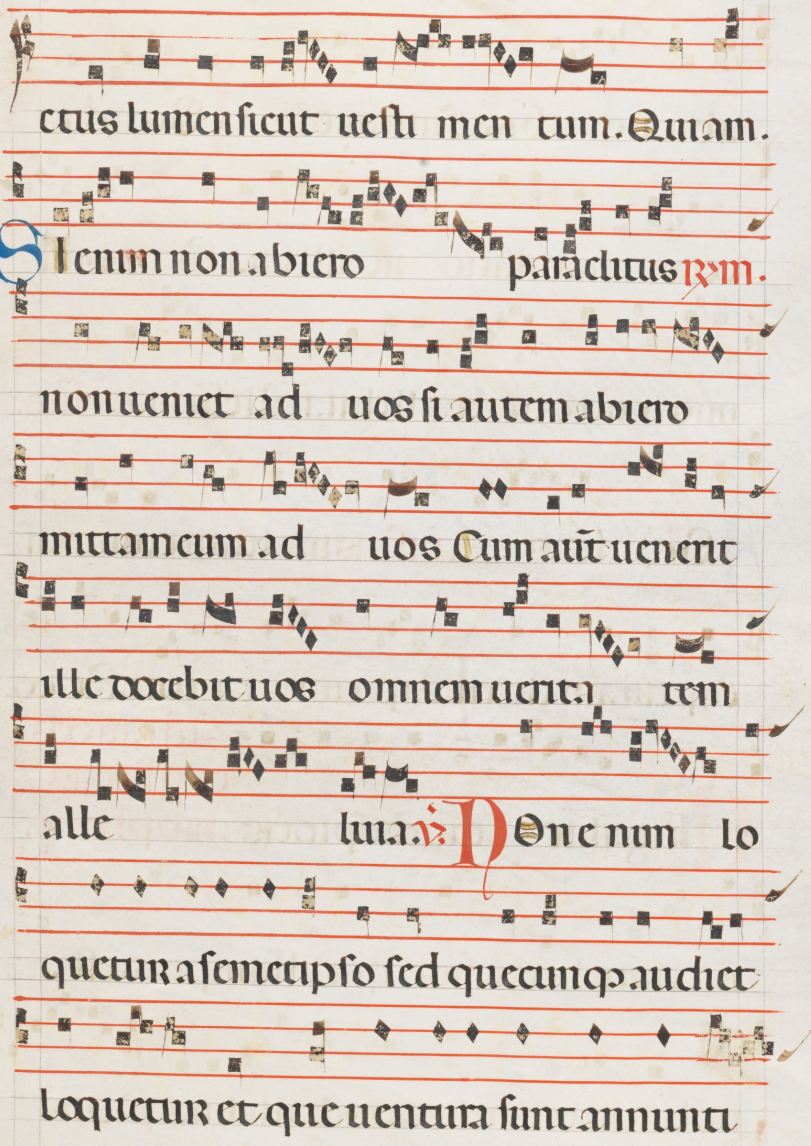 ectus lumen sicut uesti men tum. Quiam.
SI enim non abiero paraclitus R͞m.
non ueniet ad uos si autem abiero
mittam eum ad uos Cum aut̄ uenerit
ille docebit uos omnem uerita tem
alle luia. ℣. NOn enim lo
quetur a semetipso sed quecunqꝫ audiet
loquetur et que uentura sunt annunti